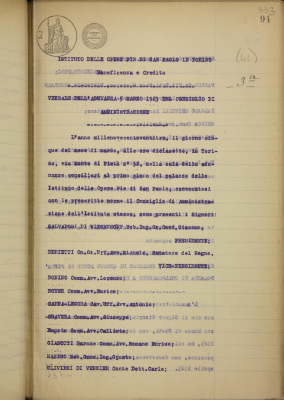 553
95
(41)
3a
ISTITUTO DELLE OPERE PIE DI SAN PAOLO IN TORINO
Beneficenza e Credito
VERBALE DELL'ADUNANZA 5 MARZO 1923 DEL CONSIGLIO DI
AMMINISTRAZIONE
L'anno millenovecentoventitre, il giorno cin-
que del mese di marzo, alle ore diciasette, in Tori-
no, via Monte di Pietà n° 32, nella sala delle adu-
nanze consiliari al primo piano del palazzo dello
Istituto delle Opere Pie di San Paolo, convocatosi
con le prescritte norme il Consiglio di Amministra-
zione dell'Istituto stesso, sono presenti i Signori:
SALVADORI DI WIESENHOFF Nob. Ing. Gr. Cord. Giacomo,
PRESIDENTE;
Gr. Uff. Avv. Michele, Senatore del Regno,
VICE-PRESIDENTE;
Comm. Avv. Lorenzo;
BOYER Comm. Avv. Enrico;
CAPPA-LEGORA Cav. Uff. Avv. Antonio;
Comm. Avv. Giuseppe;
Comm. Avv. Callisto;
GIANOTTI Barone Comm. Avv. Romano Enrico;
MARINO Nob. Comm. Ing. Ugusto;
ULIVIERI DI VERNIER Conte Dott. Carlo;